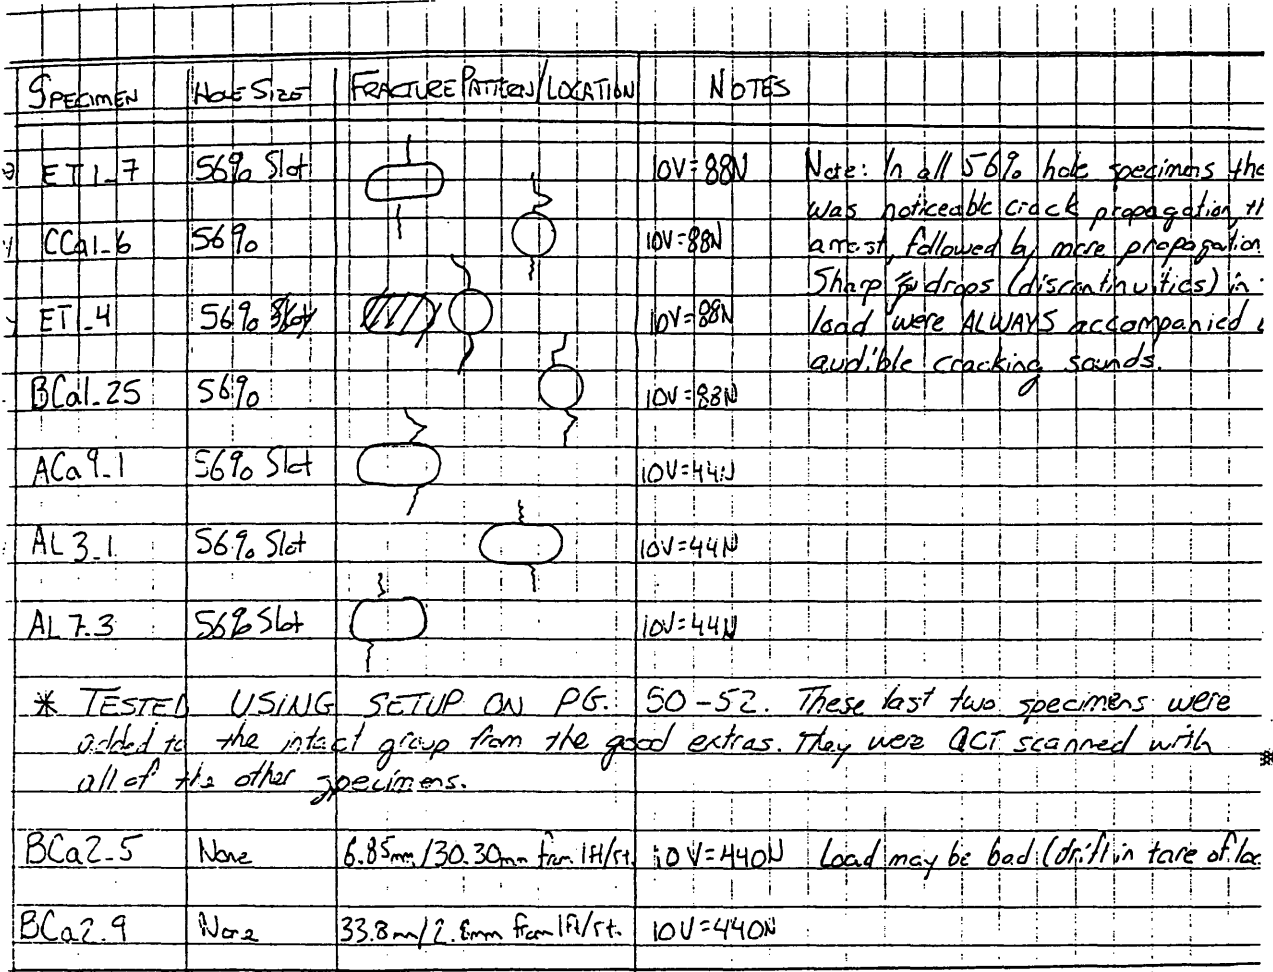 SPECIMEN HOLE SIZE FRACTURE PATTERN/LOCATION NOTES
ET1_7 56% Slot 10V=88N Note: In all 56% hole specimens the
was noticeable crack propagation, th
CCa1_6 56% 10V=88N arrest, followed by more propagation.
Sharp drops (discontinuities) in
ET1_4 56% Slot 10V=88N load were ALWAYS accompanied
audible cracking sounds.
BCa1_25 56% 10V=88N
ACa9_1 56% Slot 10V=44N
AL3_1 56% Slot 10V=44N
AL7_3 56% Slot 10V=44N
* TESTED USING SETUP ON PG. 50-52. These last two specimens were
added to the intact group from the good extras. They were QCT scanned with
all of the other specimens. *
BCa2_5 None 6.85mm/30.30mm from lft/rt. 10V=440N Load may be bad (drift in tare of
BCa2_9 None 33.8mm/ from lft/rt. 10V=440N